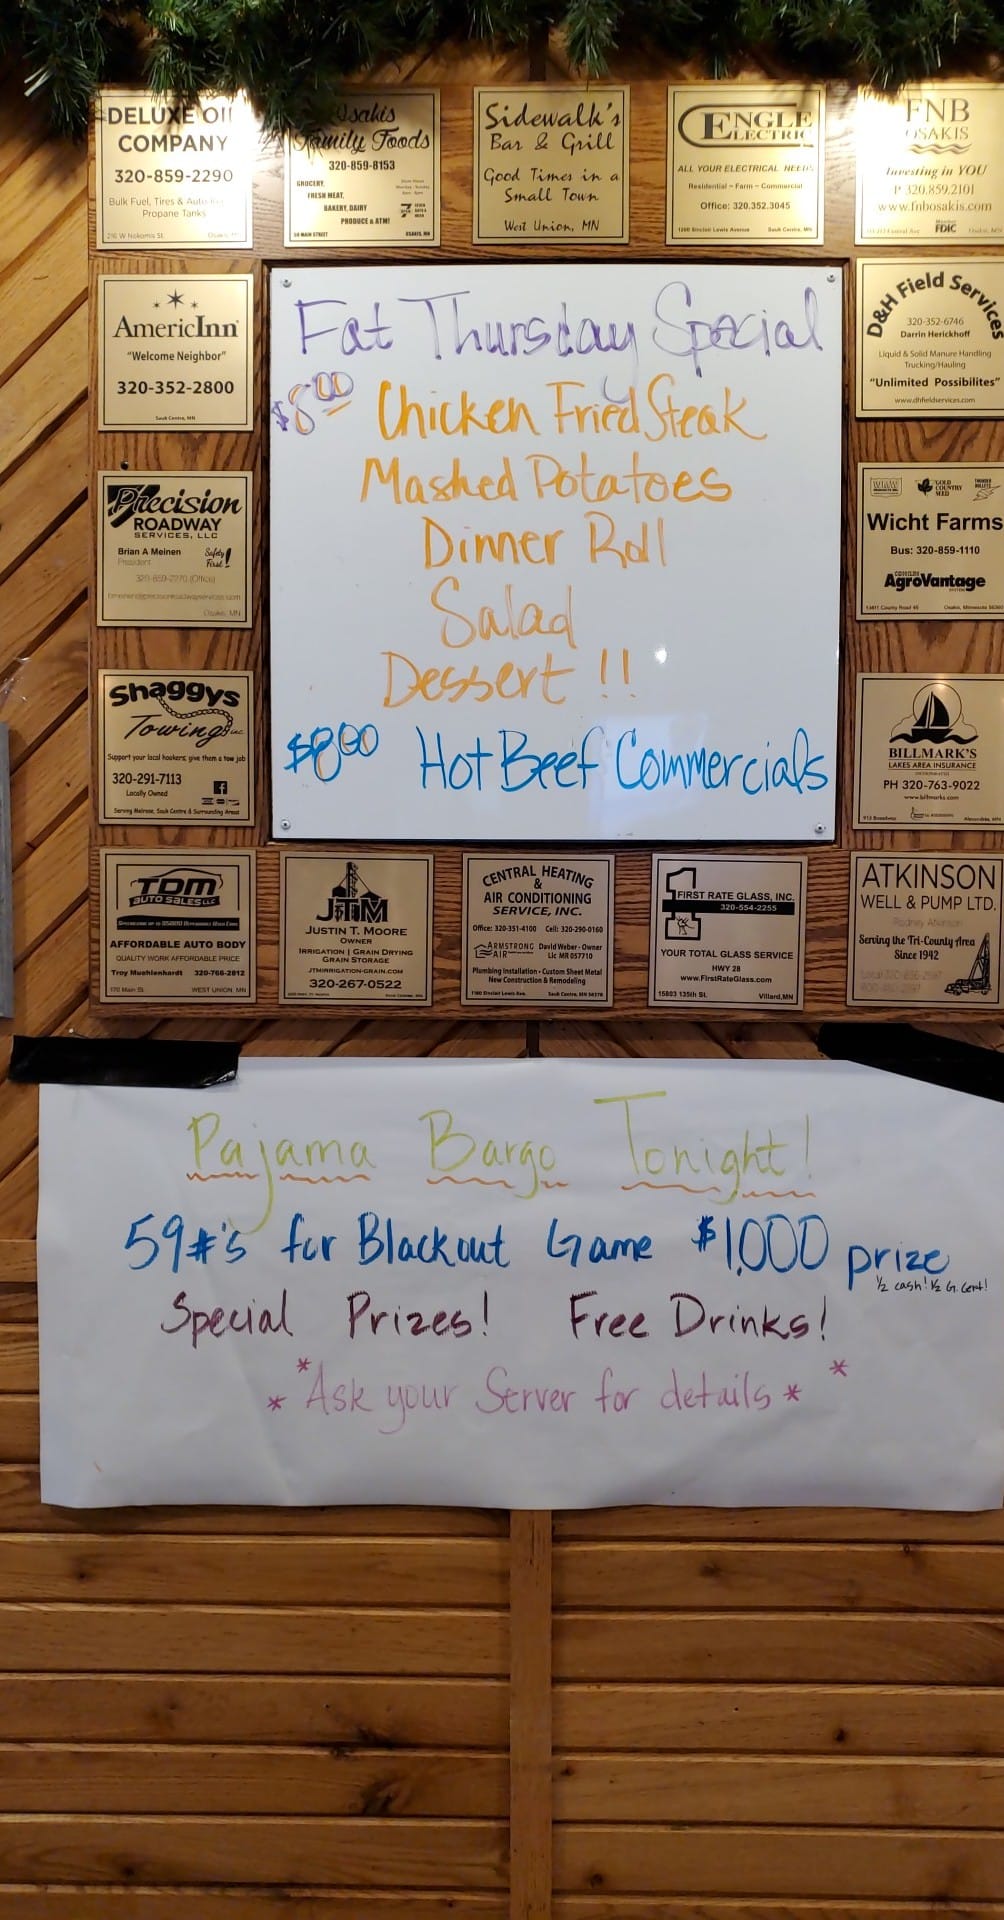 DELUXE OIL
COMPANY
320-859-2290
Bulk Fuel, Tires & Auto
Propane Tanks
216 W Nokomis St.
Osakis
Family Foods
320-859-8153
GROCERY,
FRESH MEAT,
BAKERY, DAIRY
PRODUCE & ATM!
50 MAIN STREET OSAKIS, MN
Sidewalk's
Bar & Grill
Good Times in a
Small Town
West Union, MN
ENGLE
ELECTRIC
ALL YOUR ELECTRICAL NEEDS
Residential ~ Farm ~ Commercial
Office: 320.352.3045
1200 Sinclair Lewis Avenue Sauk Centre, MN
FNB
OSAKIS
Investing in YOU
P 320.859.2101
www.fnbosakis.com
Member
FDIC
AmericInn
"Welcome Neighbor"
320-352-2800
Sauk Centre, MN
Fat Thursday Special
$8.00 Chicken Fried Steak
Mashed Potatoes
Dinner Roll
Salad
Dessert !!
$8.00 Hot Beef Commercials
D&H Field Services
320-352-6746
Darrin Herickhoff
Liquid & Solid Manure Handling
Trucking/Hauling
"Unlimited Possibilites"
www.dhfieldservices.com
Precision
ROADWAY
SERVICES, LLC
Brian A Meinen
President
Safety
First!
320-859-2270 (Office)
Osakis, MN
GOLD
COUNTRY
SEED
Wicht Farms
Bus: 320-859-1110
AgroVantage
SYSTEM
13411 County Road 45 Osakis, Minnesota 56360
Shaggys
Towing inc.
Support your local hookers, give them a tow job
320-291-7113
Locally Owned
Serving Melrose, Sauk Centre & Surrounding Areas
BILLMARK'S
LAKES AREA INSURANCE
PH 320-763-9022
www.billmarks.com
913 Broadway Alexandria, MN
TDM
AUTO SALES LLC
AFFORDABLE AUTO BODY
QUALITY WORK AFFORDABLE PRICE
Troy Muehlenhardt 320-766-2812
170 Main St. WEST UNION, MN
JTM
JUSTIN T. MOORE
OWNER
IRRIGATION | GRAIN DRYING
GRAIN STORAGE
JTMIRRIGATION-GRAIN.COM
320-267-0522
CENTRAL HEATING
&
AIR CONDITIONING
SERVICE, INC.
Office: 320-351-4100 Cell: 320-290-0160
ARMSTRONG
AIR
David Weber - Owner
Lic MR 057710
Plumbing Installation - Custom Sheet Metal
New Construction & Remodeling
1180 Sinclair Lewis Ave. Sauk Centre, MN 56378
1 FIRST RATE GLASS, INC.
320-554-2255
YOUR TOTAL GLASS SERVICE
HWY 28
www.FirstRateGlass.com
15803 135th St. Villard,MN
ATKINSON
WELL & PUMP LTD.
Rodney Atkinson
Serving the Tri-County Area
Since 1942
Pajama Bargo Tonight!
59#'s for Blackout Game $1,000 prize
1/2 cash! 1/2 G. Cert!
Special Prizes! Free Drinks!
* *Ask your Server for details * *